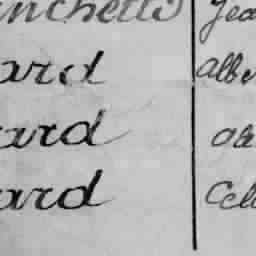 nchetto Jea
ard Albe
ard
ard Cel